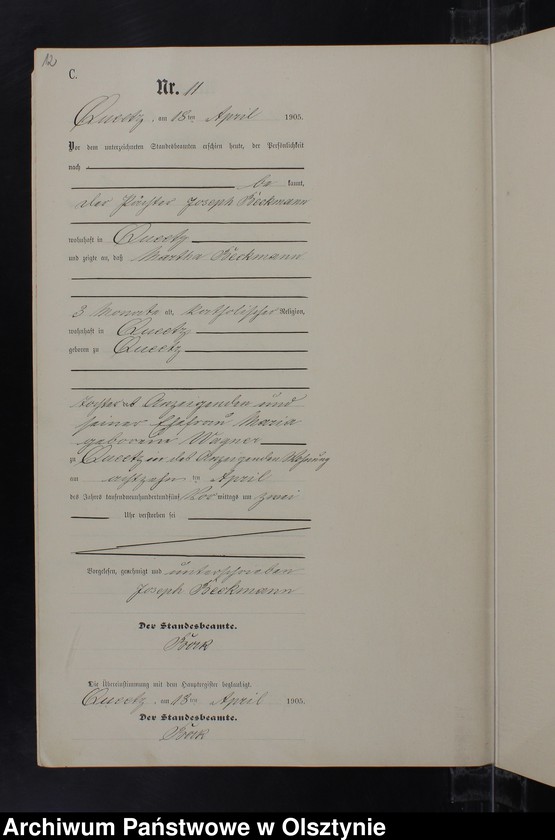 12
C.
Nr. 11
Queetz, am 18ten April 1905.
Vor dem unterzeichneten Standesbeamten erschien heute, der Persönlichkeit
nach
be kannt,
der Pächter Joseph Beckmann
wohnhaft in Queetz
und zeigte an, daß Martha Beckmann
3 Monate alt, katholischer Religion,
wohnhaft in Queetz
geboren zu Queetz
Tochter des Anzeigenden und
seiner Ehefrau Maria
geborene Wagner
zu Queetz in des Anzeigenden Wohnung
am achtzehn ten April
des Jahres tausendneunhundertundfünf Vor mittags um zwei
Uhr verstorben sei
Vorgelesen, genehmigt und unterschrieben
Joseph Beckmann
Der Standesbeamte.
Die Übereinstimmung mit dem Hauptregister beglaubigt.
Queetz, am 18ten April 1905.
Der Standesbeamte.
Archiwum Państwowe w Olsztynie